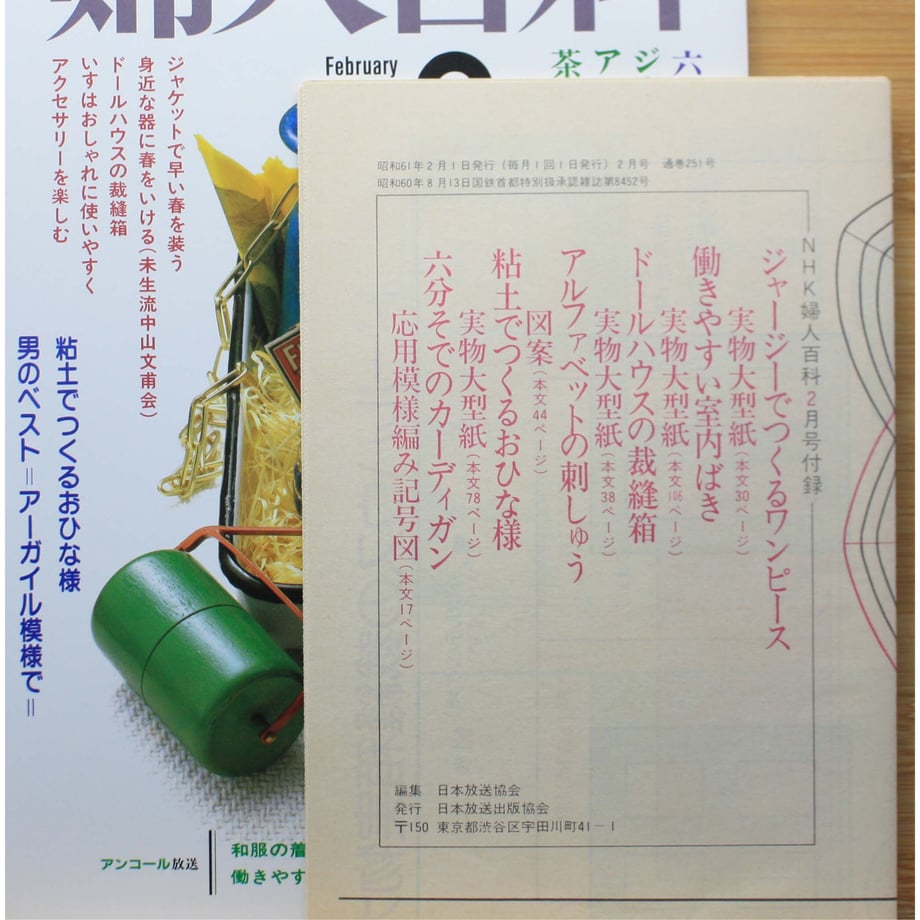 婦人百科
February
2
六
ジ
ア
茶
ジャケットで早い春を装う
身近な器に春をいける(未生流中山文甫会)
ドールハウスの裁縫箱
いすはおしゃれに使いやすく
アクセサリーを楽しむ
粘土でつくるおひな様
男のベスト=アーガイル模様で=
アンコール放送
和服の着
働きやす
昭和61年2月1日発行(毎月1回1日発行)2月号 通巻251号
昭和60年8月13日国鉄首都特別扱承認雑誌第8452号
NHK婦人百科2月号付録
ジャージーでつくるワンピース
実物大型紙(本文30ページ)
働きやすい室内ばき
実物大型紙(本文106ページ)
ドールハウスの裁縫箱
実物大型紙(本文38ページ)
アルファベットの刺しゅう
図案(本文44ページ)
粘土でつくるおひな様
実物大型紙(本文78ページ)
六分そでのカーディガン
応用模様編み記号図(本文17ページ)
編集 日本放送協会
発行 日本放送出版協会
〒150 東京都渋谷区宇田川町41-1